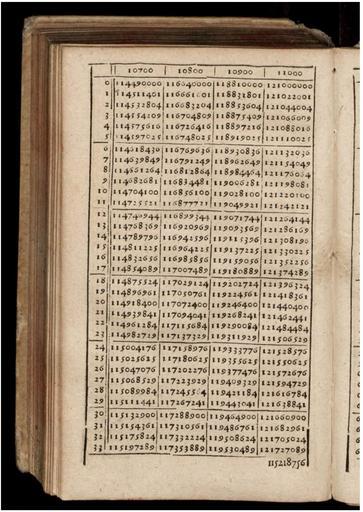 10700 10800 10900 11000
0 114490000 116640000 118810000 121000000
1 114511401 116661601 118831801 121022001
2 114532804 116683204 118853604 121044004
3 114554109 116704809 118875409 121066009
4 114575616 116726416 118897216 121088016
5 114597025 116748025 118919025 121110025
6 114618436 116769636 118930836 121132036
7 114639849 116791249 118962649 121154049
8 114661264 116812864 118984464 121176064
9 114682681 116834481 119006281 121198081
10 114704100 116856100 119028100 121220100
11 114725521 116877721 119049921 121242121
12 114746944 116899344 119071744 121264144
13 114768369 116920969 119093569 121286169
14 114789796 116942596 119115396 121308196
15 114811225 116964225 119137225 121330225
16 114832656 116985856 119159056 121352256
17 114854089 117007489 119180889 121374289
18 114875524 117029124 119202724 121396324
19 114896961 117050761 119224561 121418361
20 114918400 117072400 119246400 121440400
21 114939841 117094041 119268241 121462441
22 114961284 117115684 119290084 121484484
23 114982729 117137329 119311929 121506529
24 115004176 117158976 119333776 121528576
25 115025625 117180625 119355625 121550625
26 115047076 117202276 119377476 121572676
27 115068529 117223929 119409329 121594729
28 115089984 117245584 119421184 121616784
29 115111441 117267241 119443041 121638841
30 115132900 117288900 119464900 121660900
31 115154361 117310561 119486761 121682961
32 115175824 117332224 119508624 121705024
33 115197289 117353889 119530489 121727089
115218756